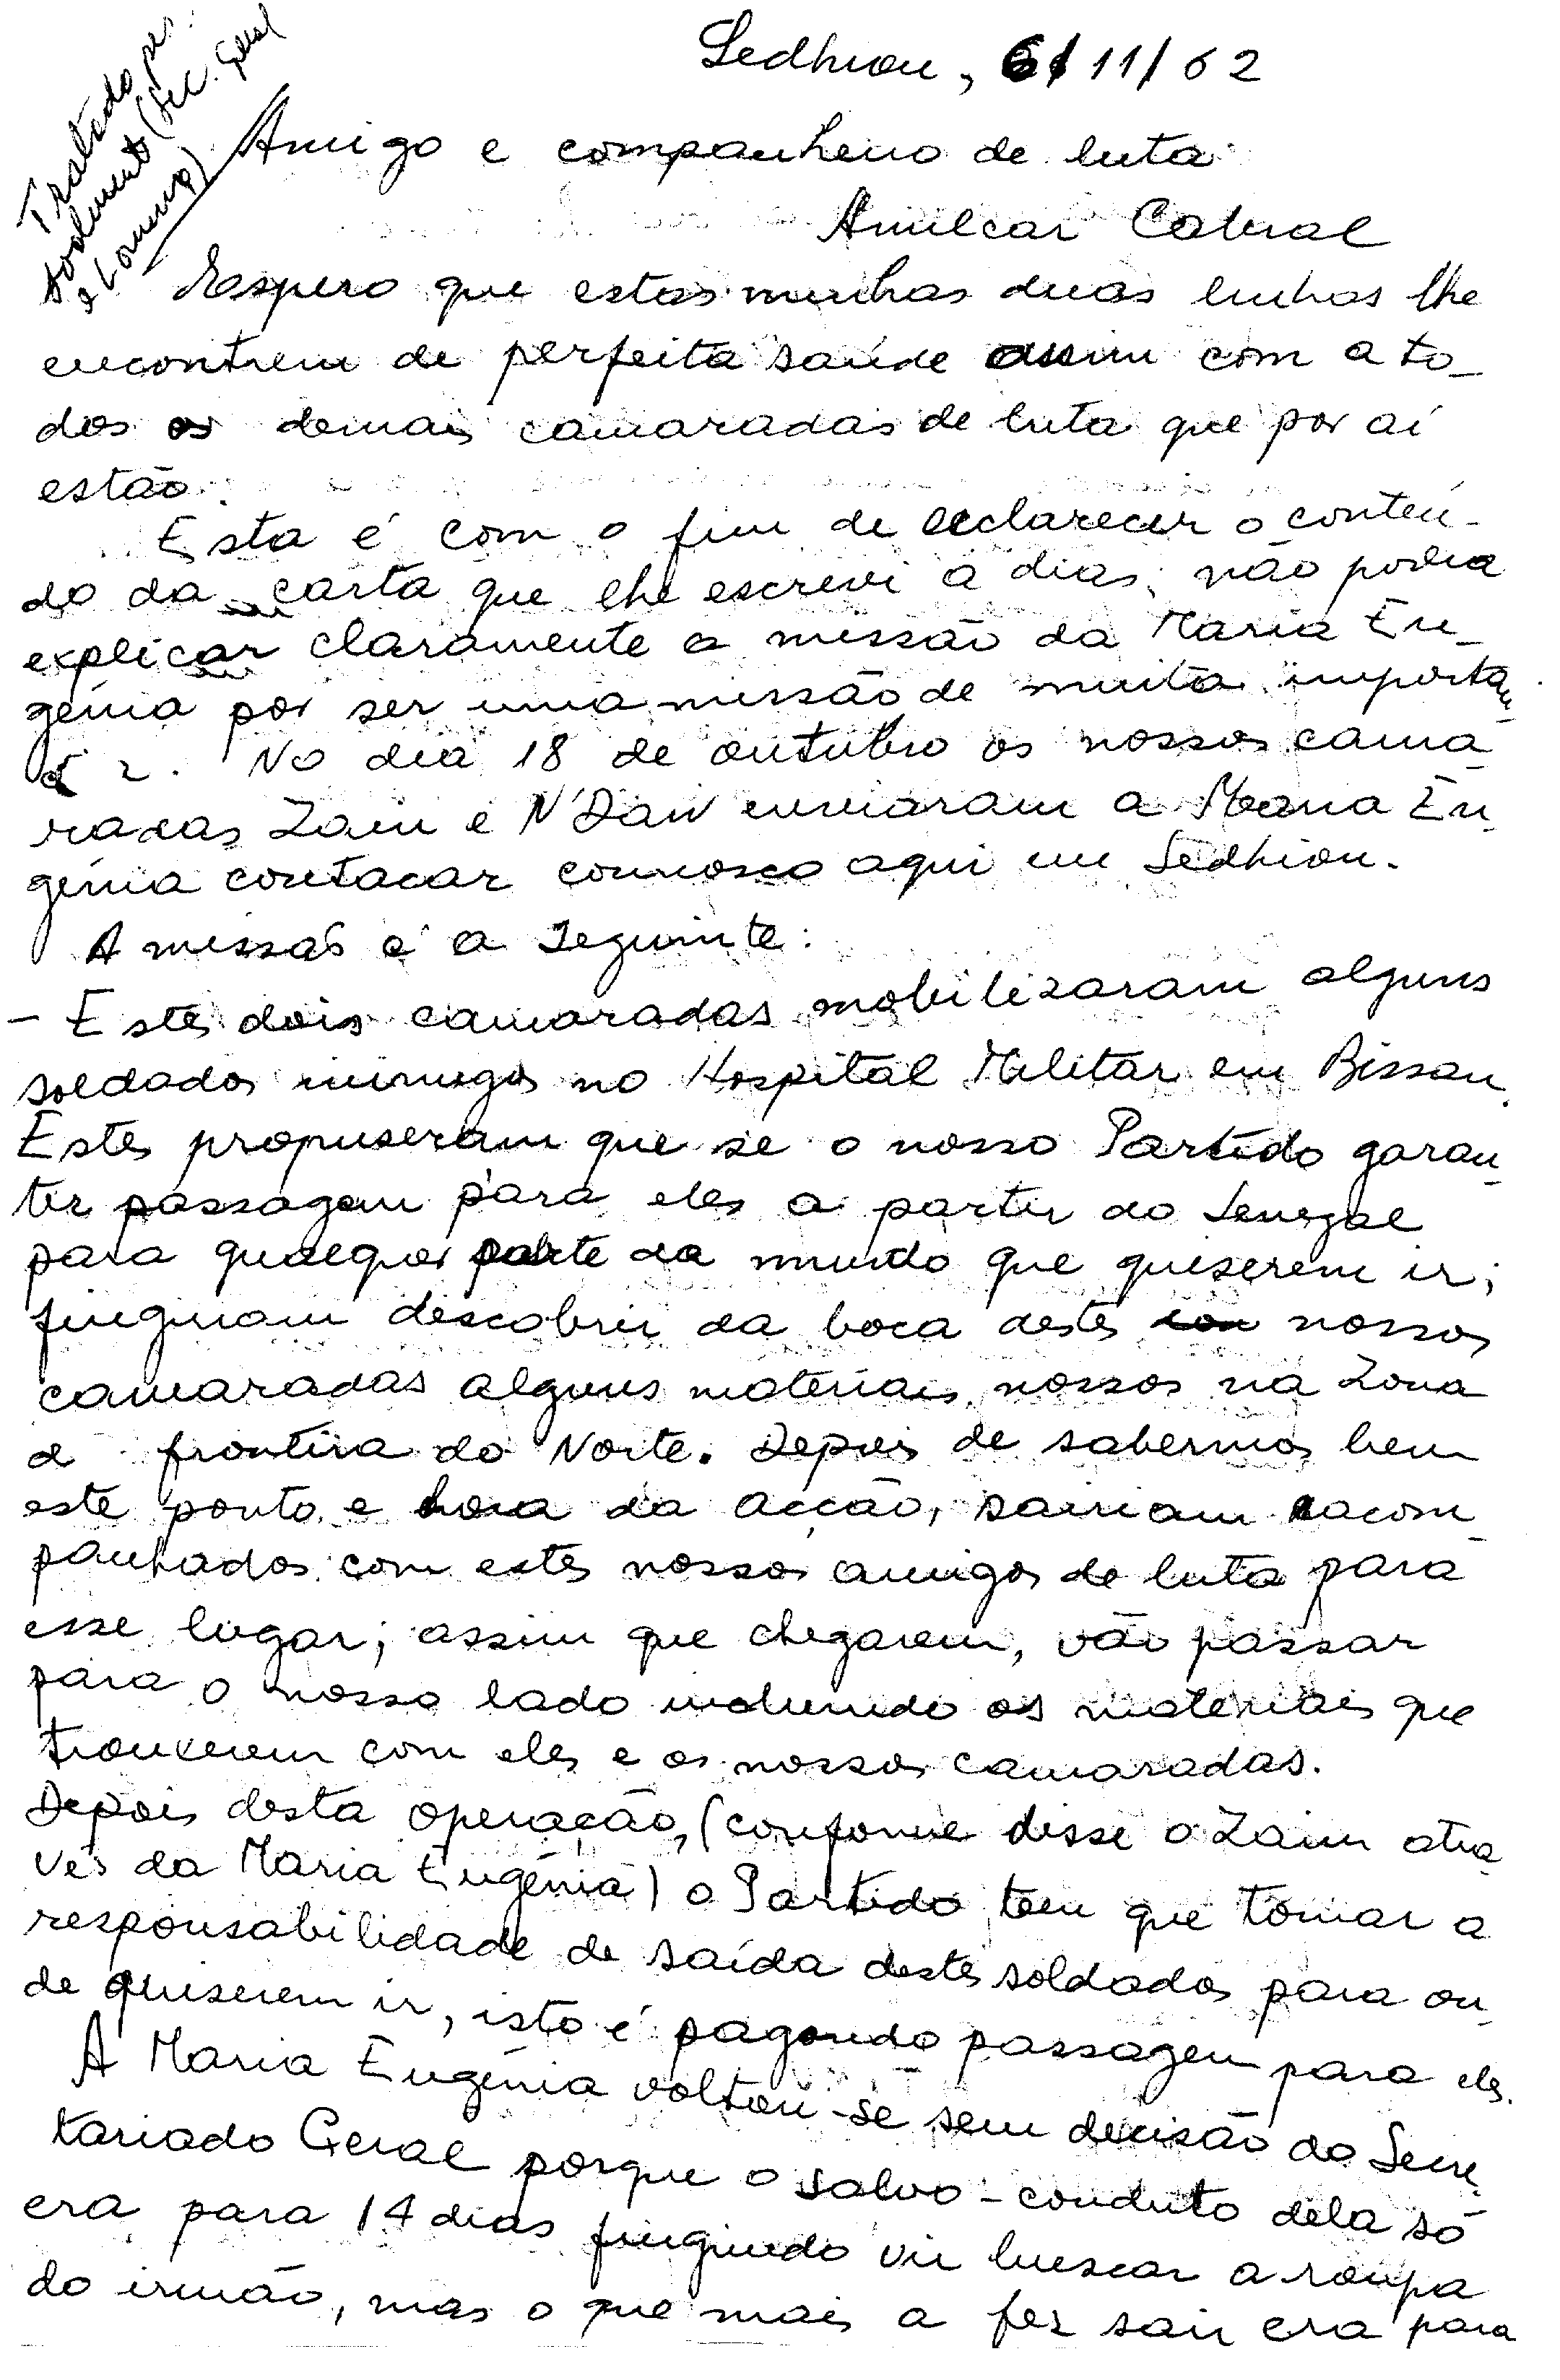 Tratado pes-
soalmente (Sec. Geral
e Lourenço)
Sedhiou, 6/11/62
Amigo e companheiro de luta
Amilcar Cabral
Espero que estas minhas duas linhas lhe
encontrem de perfeita saúde assim com a to-
dos os demais camaradas de luta que por aí
estão.
Esta é com o fim de esclarecer o conteú-
do da carta que lhe escrevi a dias; não podia
explicar claramente a missão da Maria Eu-
génia por ser uma missão de muita importan-
No dia 18 de outubro os nossos cama-
radas Zain e N'Daw enviaram a Maria Eu-
génia contacar connosco aqui em Sedhiou.
A missão é a seguinte:
- Estes dois camaradas mobilizaram alguns
soldados inimigos no Hospital Militar em Bissau.
Estes propuseram que se o nosso Partido garan-
tir passagem para eles a partir do Senegal
para qualquer parte da mundo que quiserem ir;
fingiriam descobrir da boca destes nossos
camaradas alguns materiais nossos na Zona
d frontira do Norte. Depois de sabermos bem
este ponto e hora da acção, sairiam acom-
panhados com estes nossos amigos de luta para
esse lugar; assim que chegarem, vão passar
para o nosso lado incluindo os materiais que
trouxerem com eles e os nossos camaradas.
Depois desta operação, (conforme disse o Zain atra-
vés da Maria Eugénia) o Partido tem que tomar a
responsabilidade de saída destes soldados para on-
de quiserem ir, isto é pagando passagem para eles.
A Maria Eugénia voltou-se sem decisão do Secre-
tariado Geral porque o salvo-conduto dela só
era para 14 dias fingindo vir buscar a roupa
do irmão, mas o que mais a fez sair era para